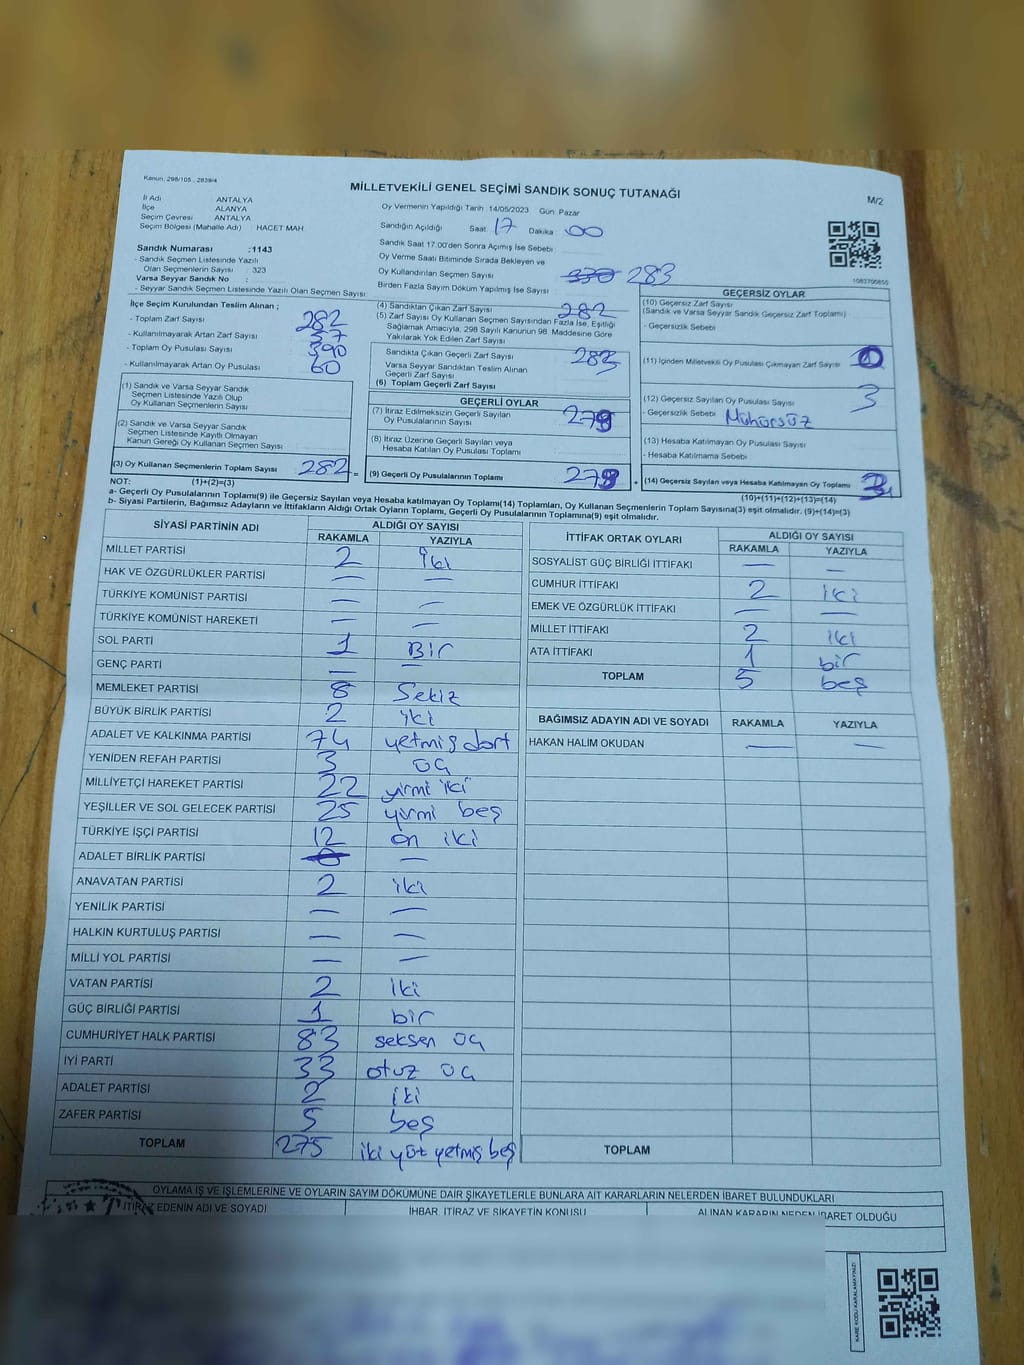 Kanun: 298/105 , 2839/4
MİLLETVEKİLİ GENEL SEÇİMİ SANDIK SONUÇ TUTANAĞI
M/2
İl Adı ANTALYA
İlçe ALANYA
Seçim Çevresi ANTALYA
Seçim Bölgesi (Mahalle Adı) HACET MAH
Oy Vermenin Yapıldığı Tarih :14/05/2023 Gün: Pazar
Sandığın Açıldığı Saat: 17 Dakika: 00
Sandık Saat 17.00'den Sonra Açımış İse Sebebi :
Oy Verme Saati Bitiminde Sırada Bekleyen ve
Oy Kullandırılan Seçmen Sayısı 283
Birden Fazla Sayım Döküm Yapılmış İse Sayısı :
1083700855
Sandık Numarası :1143
- Sandık Seçmen Listesinde Yazılı
Olan Seçmenlerin Sayısı : 323
Varsa Seyyar Sandık No :
- Seyyar Sandık Seçmen Listesinde Yazılı Olan Seçmen Sayısı :
İlçe Seçim Kurulundan Teslim Alınan ;
- Toplam Zarf Sayısı 282
- Kullanılmayarak Artan Zarf Sayısı : 37
- Toplam Oy Pusulası Sayısı : 390
- Kullanılmayarak Artan Oy Pusulası : 60
(1) Sandık ve Varsa Seyyar Sandık
Seçmen Listesinde Yazılı Olup
Oy Kullanan Seçmenlerin Sayısı :
(2) Sandık ve Varsa Seyyar Sandık
Seçmen Listesinde Kayıtlı Olmayan
Kanun Gereği Oy Kullanan Seçmen Sayısı :
(3) Oy Kullanan Seçmenlerin Toplam Sayısı 282 =
(4) Sandıktan Çıkan Zarf Sayısı 282
(5) Zarf Sayısı Oy Kullanan Seçmen Sayısından Fazla İse, Eşitliği
Sağlamak Amacıyla, 298 Sayılı Kanunun 98. Maddesine Göre
Yakılarak Yok Edilen Zarf Sayısı
Sandıkta Çıkan Geçerli Zarf Sayısı
Varsa Seyyar Sandıktan Teslim Alınan
Geçerli Zarf Sayısı
(6) Toplam Geçerli Zarf Sayısı
GEÇERLİ OYLAR
(7) İtiraz Edilmeksizin Geçerli Sayılan
Oy Pusulalarının Sayısı :
(8) İtiraz Üzerine Geçerli Sayılan veya
Hesaba Katılan Oy Pusulası Toplamı :
(9) Geçerli Oy Pusulalarının Toplamı +
GEÇERSİZ OYLAR
(10) Geçersiz Zarf Sayısı
(Sandık ve Varsa Seyyar Sandık Geçersiz Zarf Toplamı)
- Geçersizlik Sebebi :
(11) İçinden Milletvekili Oy Pusulası Çıkmayan Zarf Sayısı :
(12) Geçersiz Sayılan Oy Pusulası Sayısı 3
- Geçersizlik Sebebi Mühürsüz
(13) Hesaba Katılmayan Oy Pusulası Sayısı
- Hesaba Katılmama Sebebi
(14) Geçersiz Sayılan veya Hesaba Katılmayan Oy Toplamı
NOT: (1)+(2)=(3) (10)+(11)+(12)+(13)=(14)
a- Geçerli Oy Pusulalarının Toplamı(9) ile Geçersiz Sayılan veya Hesaba katılmayan Oy Toplamı(14) Toplamları, Oy Kullanan Seçmenlerin Toplam Sayısına(3) eşit olmalıdır. (9)+(14)=(3)
b- Siyasi Partilerin, Bağımsız Adayların ve İttifakların Aldığı Ortak Oyların Toplamı, Geçerli Oy Pusulalarının Toplamına(9) eşit olmalıdır.
SİYASİ PARTİNİN ADI ALDIĞI OY SAYISI
RAKAMLA YAZIYLA
MİLLET PARTİSİ 2 iki
HAK VE ÖZGÜRLÜKLER PARTİSİ — —
TÜRKİYE KOMÜNİST PARTİSİ — —
TÜRKİYE KOMÜNİST HAREKETİ — —
SOL PARTİ 1 Bir
GENÇ PARTİ — —
MEMLEKET PARTİSİ 8 Sekiz
BÜYÜK BİRLİK PARTİSİ 2 iki
ADALET VE KALKINMA PARTİSİ 74 yetmiş dört
YENİDEN REFAH PARTİSİ 3 üç
MİLLİYETÇİ HAREKET PARTİSİ 22 yirmi iki
YEŞİLLER VE SOL GELECEK PARTİSİ 25 yirmi beş
TÜRKİYE İŞÇİ PARTİSİ 12 on iki
ADALET BİRLİK PARTİSİ —
ANAVATAN PARTİSİ 2 iki
YENİLİK PARTİSİ — —
HALKIN KURTULUŞ PARTİSİ — —
MİLLİ YOL PARTİSİ — —
VATAN PARTİSİ 2 iki
GÜÇ BİRLİĞİ PARTİSİ 1 bir
CUMHURİYET HALK PARTİSİ 83 seksen üç
İYİ PARTİ 33 otuz üç
ADALET PARTİSİ 2 iki
ZAFER PARTİSİ 5 beş
TOPLAM 275 iki yüz yetmiş beş
İTTİFAK ORTAK OYLARI ALDIĞI OY SAYISI
RAKAMLA YAZIYLA
SOSYALİST GÜÇ BİRLİĞİ İTTİFAKI — —
CUMHUR İTTİFAKI 2 iki
EMEK VE ÖZGÜRLÜK İTTİFAKI — —
MİLLET İTTİFAKI 2 iki
ATA İTTİFAKI 1 bir
TOPLAM 5 beş
BAĞIMSIZ ADAYIN ADI VE SOYADI RAKAMLA YAZIYLA
HAKAN HALİM OKUDAN — —
TOPLAM
OYLAMA İŞ VE İŞLEMLERİNE VE OYLARIN SAYIM DÖKÜMÜNE DAİR ŞİKAYETLERLE BUNLARA AİT KARARLARIN NELERDEN İBARET BULUNDUKLARI
İTİRAZ EDENİN ADI VE SOYADI İHBAR, İTİRAZ VE ŞİKAYETİN KONUSU ALINAN KARARIN NEDEN İBARET OLDUĞU
KARE KODU KARALAMAYINIZ!